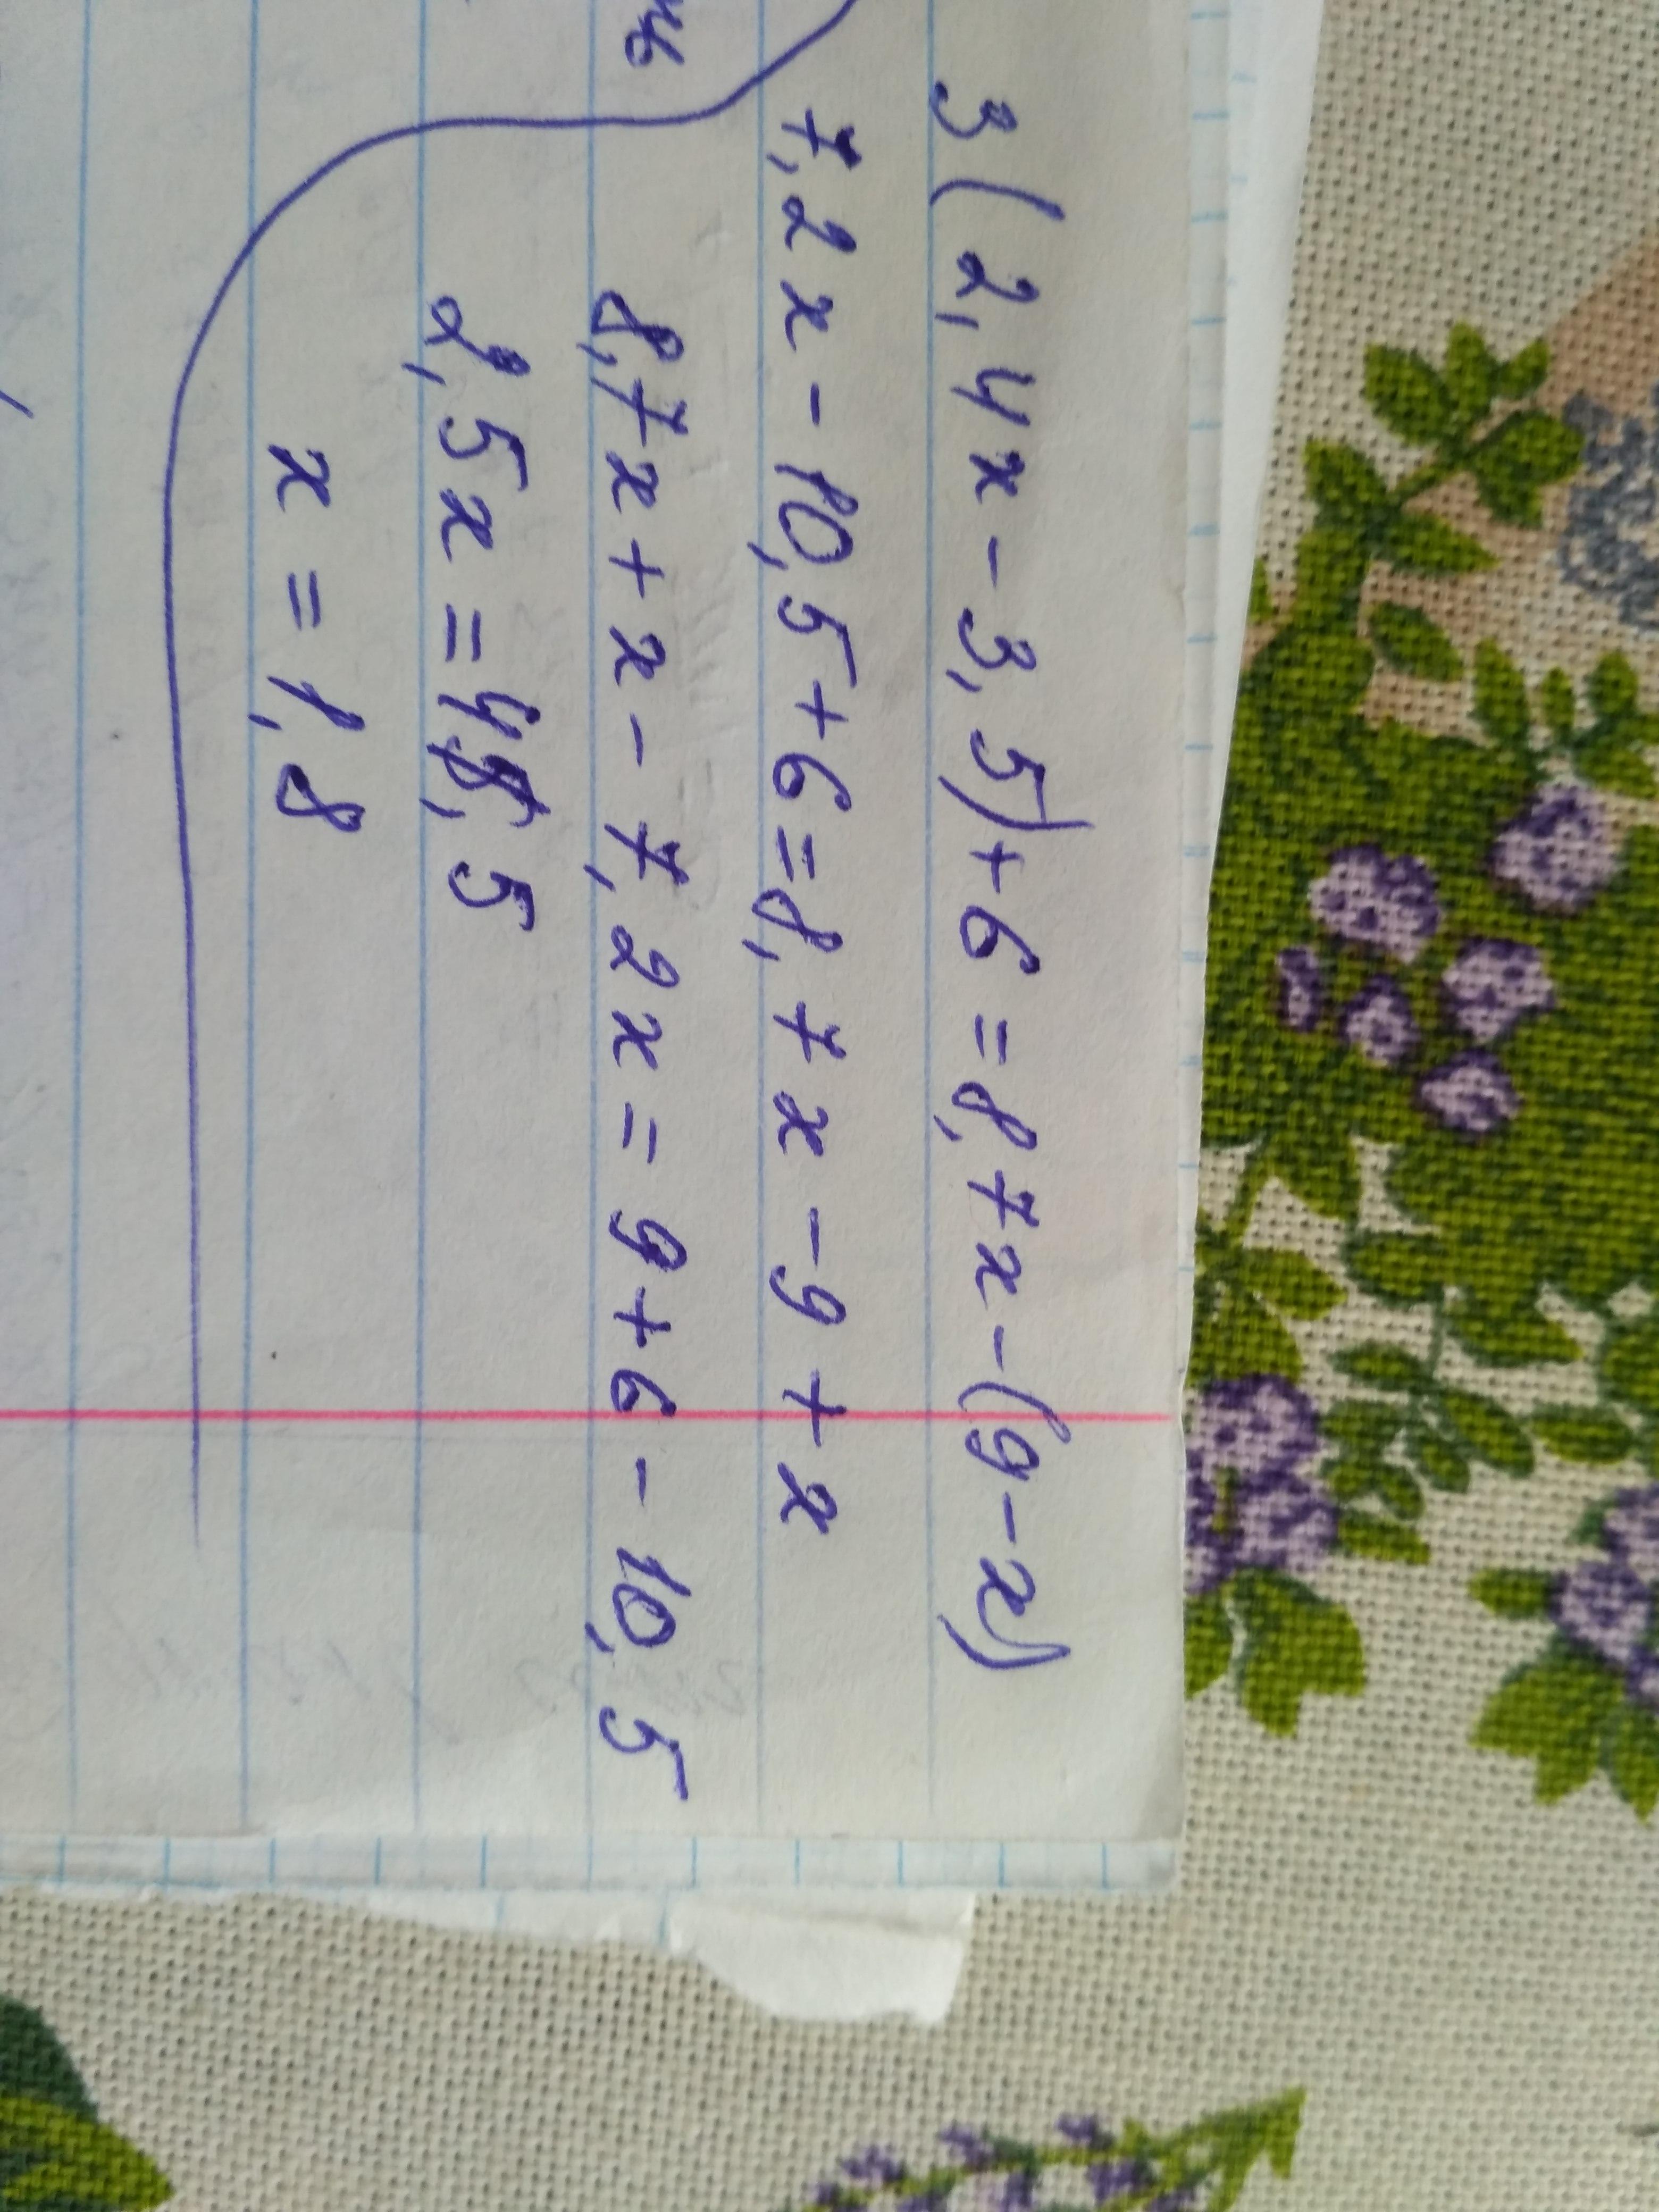 3(2,4x-3,5)+6=8,7x-(9-x)
7,2x-10,5+6=8,7x-9+x
8,7x+x-7,2x=9+6-10,5
2,5x=4,5
x=1,8